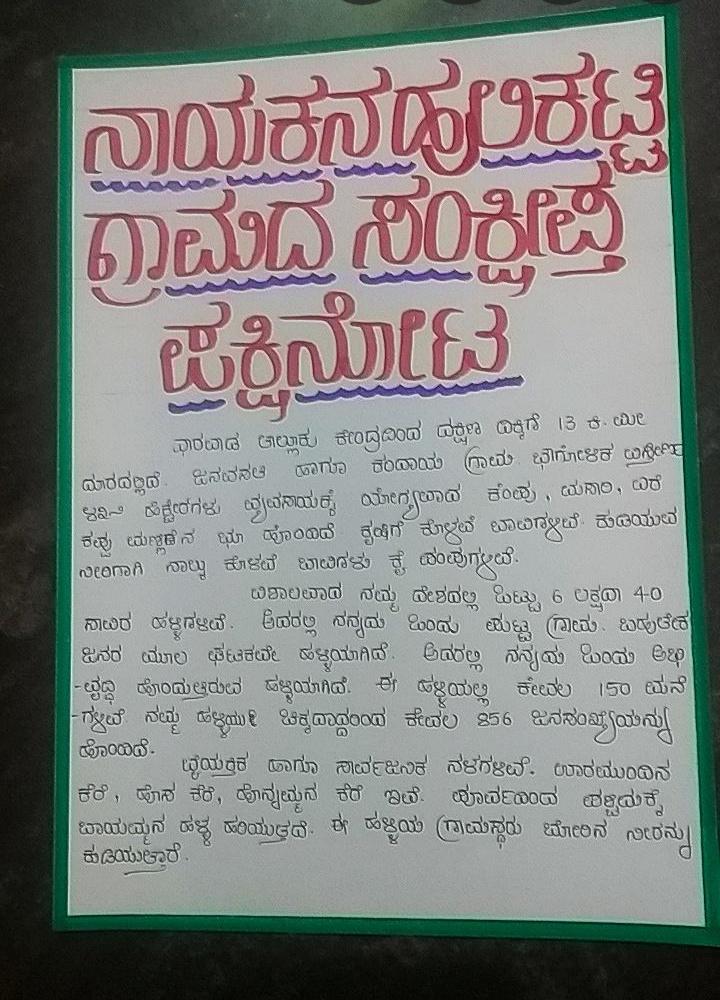 ನಾಯಕನಹುಲಿಕಟ್ಟಿ
ಗ್ರಾಮದ ಸಂಕ್ಷೀಪ್ತ
ಪಕ್ಷಿನೋಟ
ಧಾರವಾಡ ತಾಲ್ಲೂಕು ಕೇಂದ್ರದಿಂದ ದಕ್ಷಿಣ ದಿಕ್ಕಿಗೆ 13 ಕಿ.ಮೀ
ದೂರದಲ್ಲಿದೆ. ಜನವಸತಿ ಹಾಗೂ ಕಂದಾಯ ಗ್ರಾಮ. ಭೌಗೋಳಿಕ ವಿಸ್ತೀರ್ಣ
ಹೆಕ್ಟೇರಗಳು ವ್ಯವಸಾಯಕ್ಕೆ ಯೋಗ್ಯವಾದ ಕೆಂಪು, ಮಸಾರಿ, ಎರೆ
ಕಪ್ಪು ಭೂ ಹೊಂದಿದೆ ಕೃಷಿಗೆ ಕೊಳವೆ ಬಾವಿಗಳಿವೆ. ಕುಡಿಯುವ
ನೀರಿಗಾಗಿ ನಾಲ್ಕು ಕೊಳವೆ ಬಾವಿಗಳು ಕೈ ಪಂಪುಗಳಿವೆ.
ವಿಶಾಲವಾದ ನಮ್ಮ ದೇಶದಲ್ಲಿ ಒಟ್ಟು 6 ಲಕ್ಷದಾ 40
ಸಾವಿರ ಹಳ್ಳಿಗಳಿವೆ. ಅದರಲ್ಲಿ ನನ್ನದು ಒಂದು ಪುಟ್ಟ ಗ್ರಾಮ. ಬಹುತೇಕ
ಜನರ ಮೂಲ ಘಟಕವೇ ಹಳ್ಳಿಯಾಗಿದೆ. ಅದರಲ್ಲಿ ನನ್ನದು ಒಂದು ಅಭಿ
-ವೃದ್ಧಿ ಹೊಂದುತ್ತಿರುವ ಹಳ್ಳಿಯಾಗಿದೆ. ಈ ಹಳ್ಳಿಯಲ್ಲಿ ಕೇವಲ 150 ಮನೆ
-ಗಳಿವೆ ನಮ್ಮ ಹಳ್ಳಿಯು ಚಿಕ್ಕದಾದ್ದರಿಂದ ಕೇವಲ 856 ಜನಸಂಖ್ಯೆಯನ್ನು
ಹೊಂದಿದೆ.
ವೈಯಕ್ತಿಕ ಹಾಗೂ ಸಾರ್ವಜನಿಕ ನಳಗಳಿವೆ. ಊರಮುಂದಿನ
ಕೆರೆ, ಹೊಸ ಕೆರೆ, ಹೊನ್ನಮ್ಮನ ಕೆರೆ ಇವೆ. ಪೂರ್ವದಿಂದ ಪಶ್ಚಿಮಕ್ಕೆ
ಬಾಯಮ್ಮನ ಹಳ್ಳ ಹರಿಯುತ್ತದೆ. ಈ ಹಳ್ಳಿಯ ಗ್ರಾಮಸ್ಥರು ಬೋರಿನ ನೀರನ್ನು
ಕುಡಿಯುತ್ತಾರೆ.